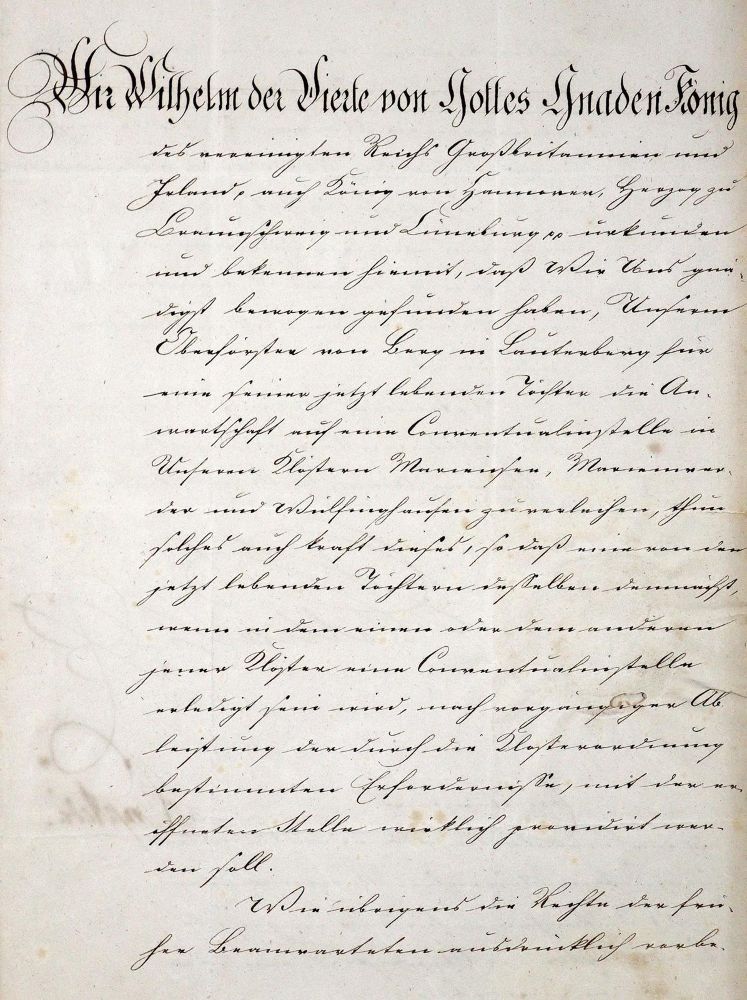 Wir Wilhelm der Vierte von Gottes Gnaden König
des vereinigten Reichs Großbritannien und
Irland, auch König von Hannover, Herzog zu
Braunschweig und Lüneburg pp urkunden
und bekennen hiemit, daß Wir Uns gnä-
digst bewogen gefunden haben, Unserm
Oberförster von Berg in Lauterberg für
eine seiner jetzt lebenden Töchter die An-
wartschaft auf eine Conventualinstelle in
Unseren Klöstern Mariensee, Marienwer-
der und Wülfinghausen zu verleihen, thun
solches auch kraft dieses, so daß eine von den
jetzt lebenden Töchtern desselben demnächst,
wenn in dem einen oder dem anderen
jener Klöster eine Conventualinstelle
erledigt sein wird, nach vorgängiger Ab
leistung der durch die Klosterordnung
bestimmten Erfordernisse, mit der er-
öffneten Stelle wirklich providirt wer-
den soll.
Wie übrigens die Rechte der frü-
her Beanwarteten ausdrücklich vorbe-